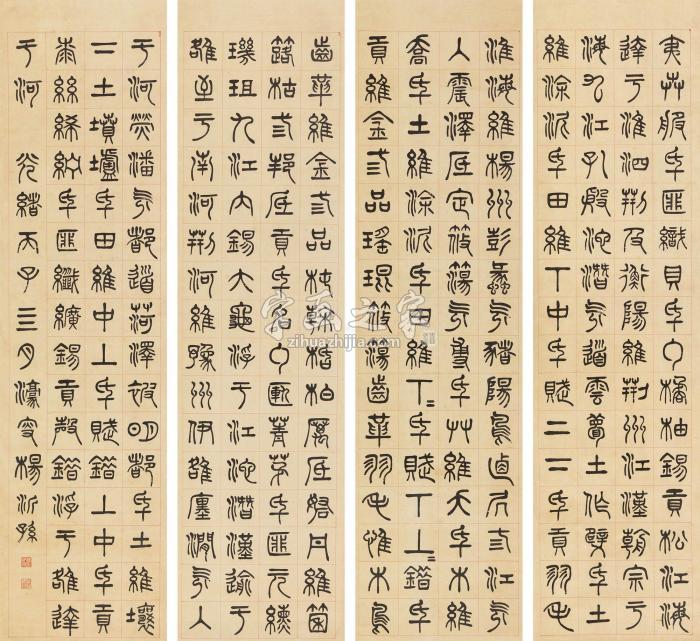 淮海維楊州彭蠡既豬陽鳥逌凥三江既
入震澤厎定筱簜既敷厥艸維夭厥木維
喬厥土維涂泥厥田維下=厥賦下上=錯厥
貢維金三品瑤琨筱簜齒革羽毛惟木鳥
夷卉服厥匪織貝厥包橘柚錫貢松江海
達于淮泗荊及衡陽維荊州江漢朝宗于
海九江孔殷沱潛既道雲夢土作乂厥土
維涂泥厥田維下中厥賦上下厥貢羽毛
齒革維金三品杶榦栝柏厲厎砮丹維箘
簵枯三邦厎貢厥名包匭菁茅厥匪玄纁
璣珇九江內錫大龜浮于江沱潛漢逾于
雒至于南河荊河維豫州伊雒瀍澗既入
于河熒潘既都道菏澤被明都厥土維壤
下土墳壚厥田維中上厥賦錯上中厥貢
桼絲絺紵厥匪纖纊錫貢磬錯浮于雒達
于河 光緒丙子三月濠叟楊沂孫
字画之家
zihuazhijia.com